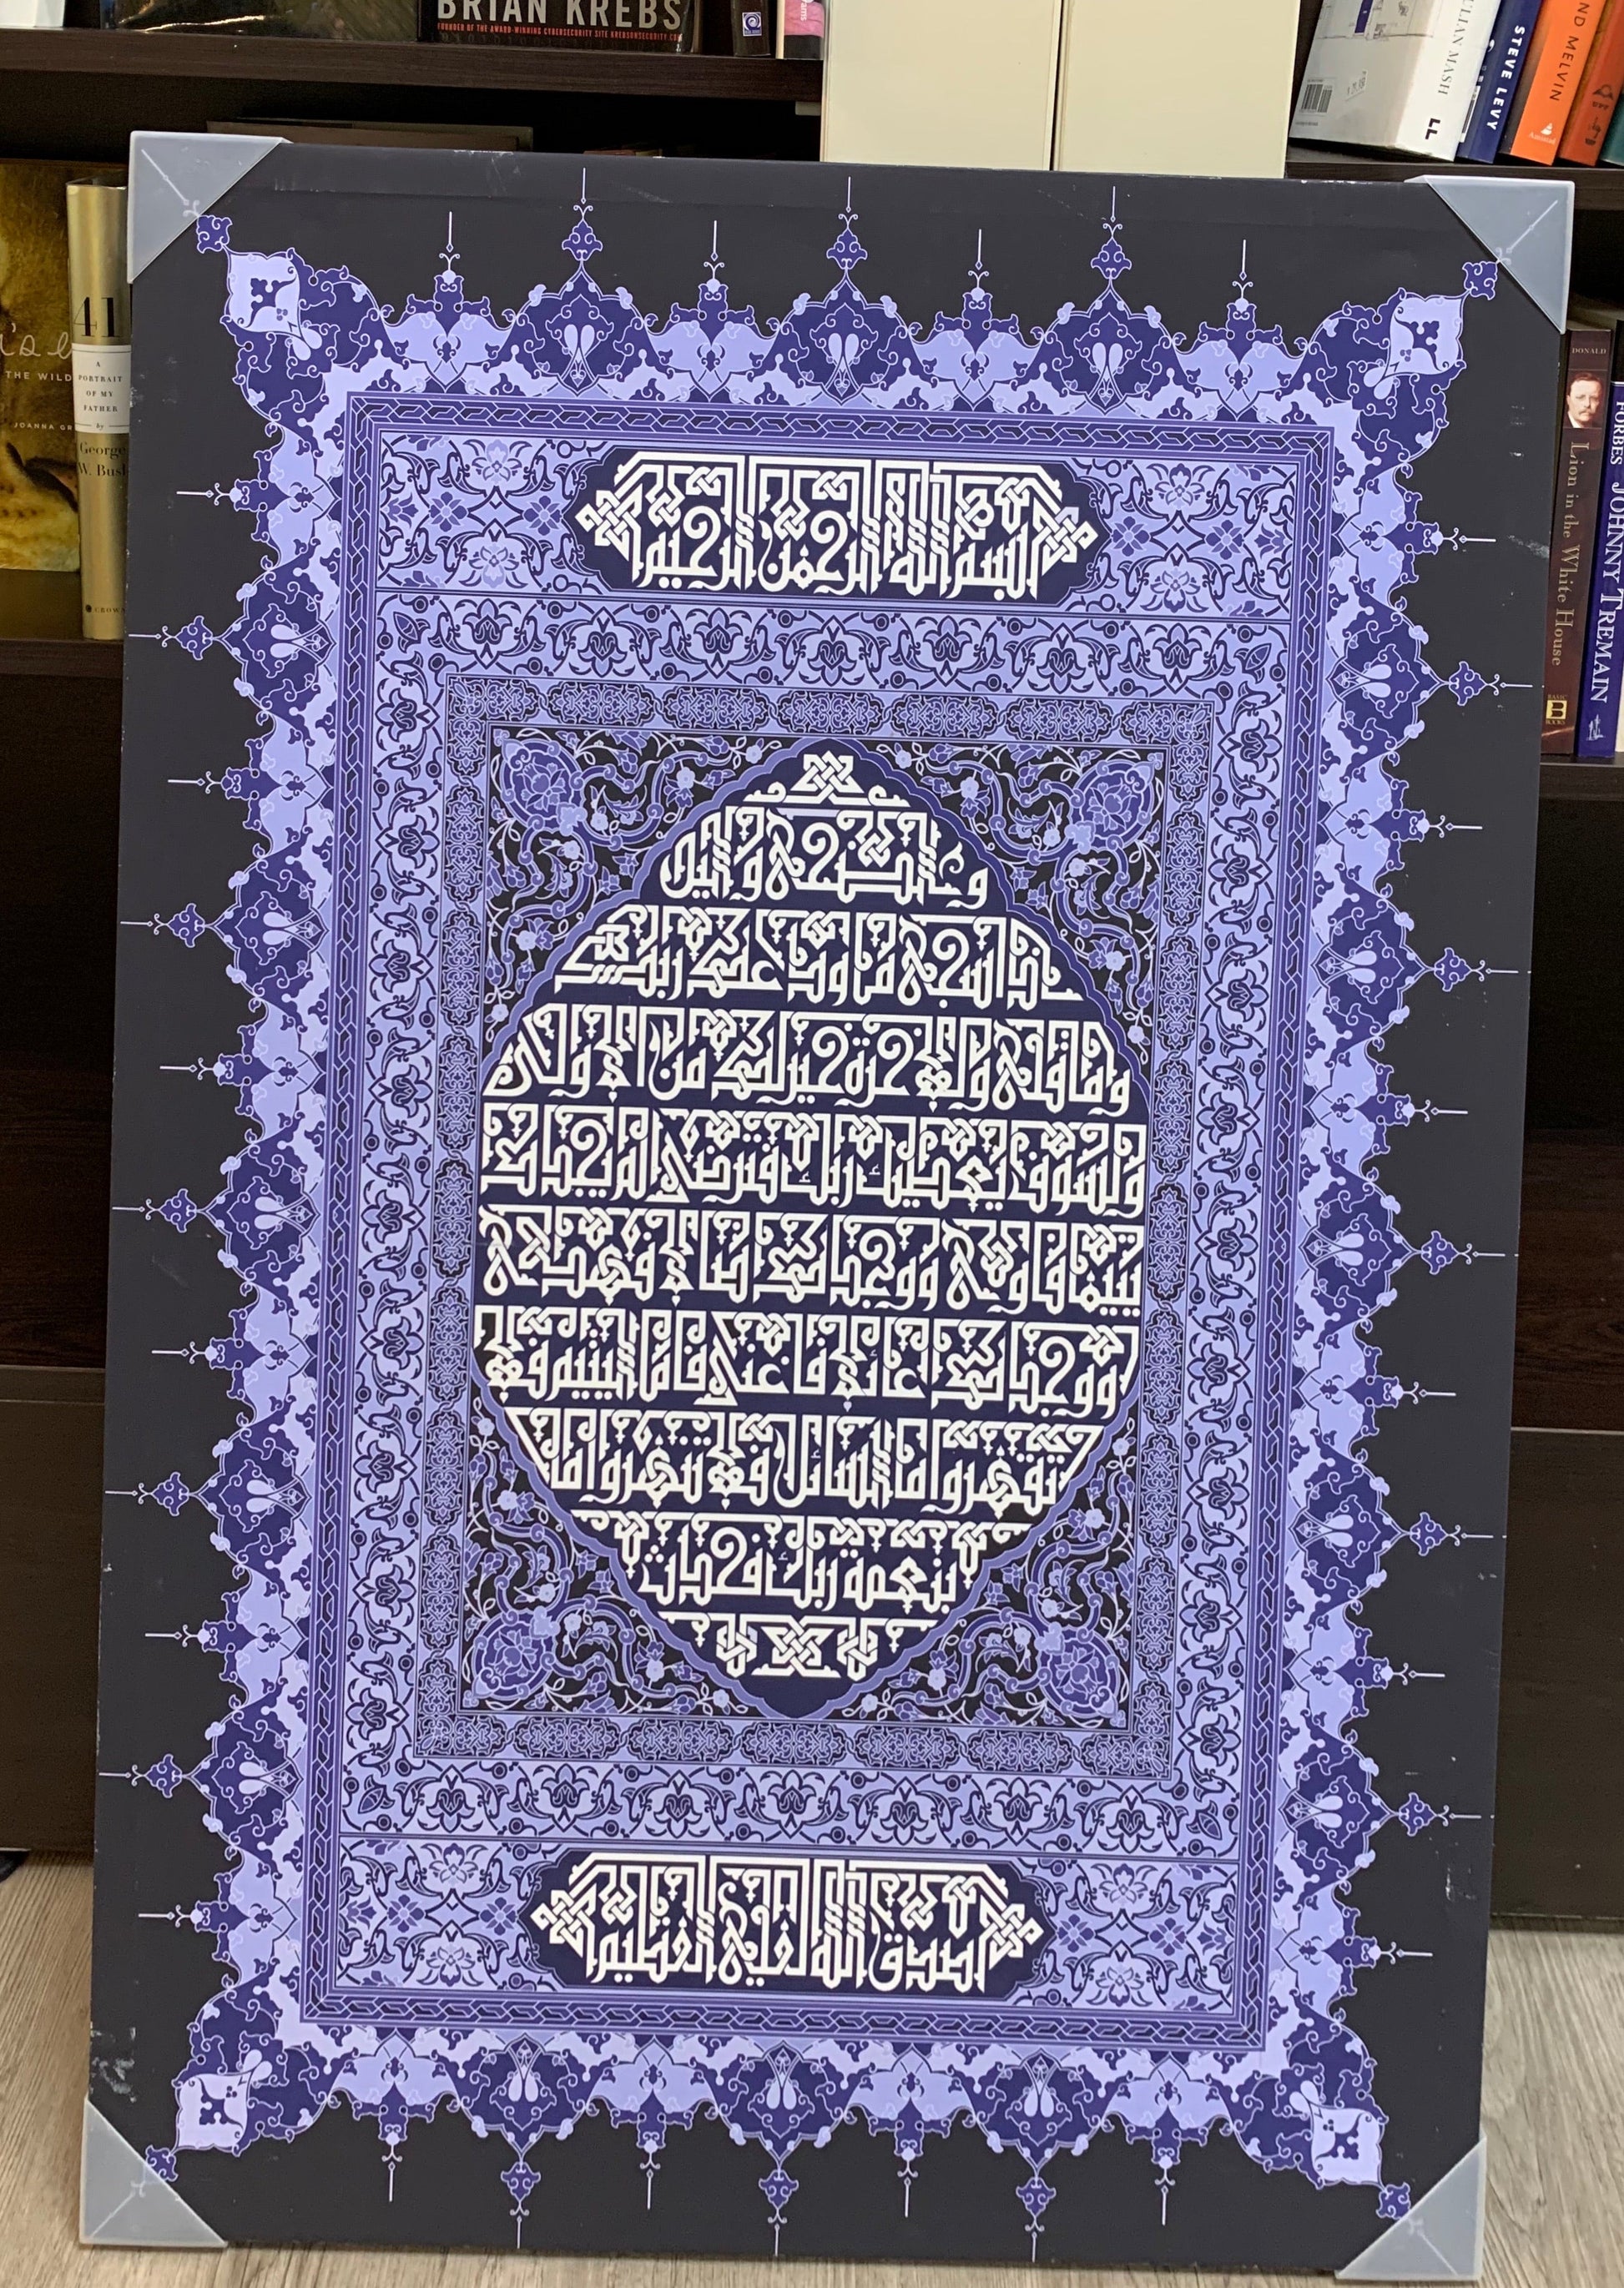 BRIAN KREBS
FOUNDER OF THE AWARD-WINNING CYBERSECURITY SITE KREBSONSECURITY.COM
LIAN MASH
STEVE LEVY
ND MELVIN
بسم الله الرحمن الرحيم
والضحى واليل
إذا سجى ما ودعك ربك
وما قلى وللآخرة خير لك من الأولى
ولسوف يعطيك ربك فترضى ألم يجدك
يتيما فآوى ووجدك ضالا فهدى
ووجدك عائلا فأغنى فأما اليتيم فلا
تقهر وأما السائل فلا تنهر وأما
بنعمة ربك فحدث
صدق الله العلي العظيم
THE WILD
JOANNA GR
41
A
PORTRAIT
OF MY
FATHER
by
George
W. Bush
CROWN
DONALD
Lion in the White House
BASIC
BOOKS
FORBES JOHNNY TREMAIN